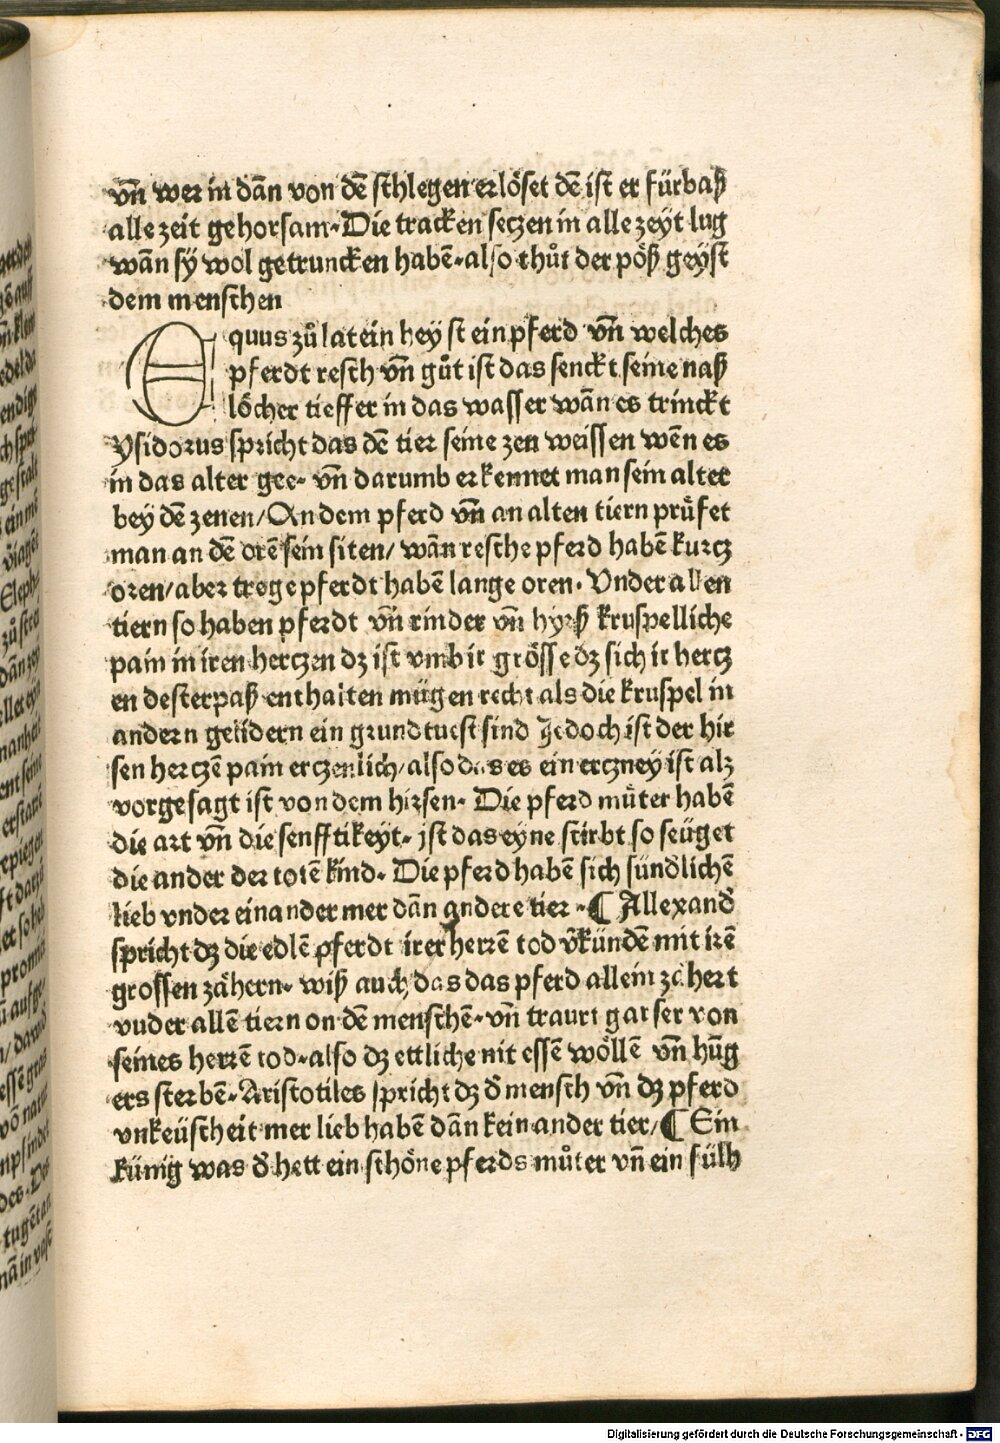 vn̄ wer in dān von dē schlegen erlöset dē ist er fürbaß
alle zeit gehorsam. Die tracken seczen in alle zeyt lug
wān sy wol getruncken habē. also thůt der pöß geyst
dem menschen
Equus zů latein heyst ein pferd vn̄ welches
pferdt resch vn̄ gůt ist das senckt seine naß
löcher tieffer in das wasser wān es trinckt
Ysidorus spricht das dē tier seine zen weissen wēn es
in das alter gee. vn̄ darumb erkennet man sein alter
bey dē zenen/ An dem pferd vn̄ an alten tiern prüfet
man an dē orē sein siten/ wān resche pferd habē kurcz
oren/ aber trege pferdt habē lange oren. Vnder allen
tiern so haben pferdt vn̄ rinder vn̄ hyrß kruspelliche
pain in iren herczen dz ist vmb ir grösse dz sich ir hercz
en desterpaß enthalten mügen recht als die kruspel in
andern gelidern ein grundtuest sind Jedoch ist der hir
sen herczē pain erczenlich/ also das es ein erczney ist alz
vorgesagt ist von dem hirsen. Die pferd müter habē
die art vn̄ die senfftikeyt. ist das eyne stirbt so seüget
die ander der totē kind. Die pferd habē sich sündlichen
lieb vnder einander mer dān andere tier. ¶ Allexand̄
spricht dz die edlē pferdt irer herrē tod v̄kündē mit irē
grossen zähern. wiß auch das das pferd allein zähert
vuder allē tiern on dē menschē. vn̄ traurt gar ser von
seines herrē tod. also dz ettliche nit essē wöllē vn̄ hūg
ers sterbē. Aristotiles spricht dz d̄ mensch vn̄ dz pferd
vnkeüscheit mer lieb habē dān kein ander tier/ ¶ Ein
künig was d̄ hett ein schöne pferds můter vn̄ ein fülh
Digitalisierung gefördert durch die Deutsche Forschungsgemeinschaft - DFG